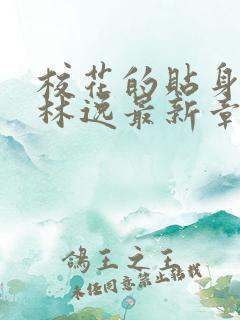 校花的贴身
林逸最新章
鸽王之王
未经同意禁止转载